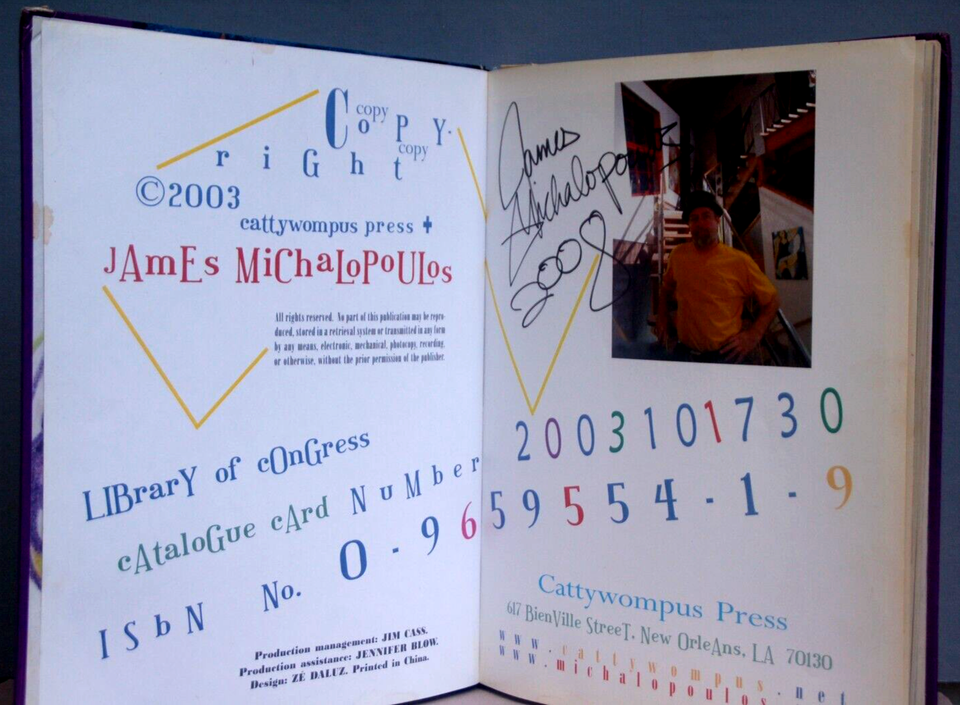 Copy copy
Right copy
©2003
cattywompus press +
JAmEs MiChaLoPoULos
All rights reserved. No part of this publication may be repro-
duced, stored in a retrieval system or transmitted in any form
by any means, electronic, mechanical, photocopy, recording,
or otherwise, without the prior permission of the publisher.
LIBrarY of cOnGress
cAtaloGue cArd NuMber
ISbN No. 0-9659554-1-9
Production management: JIM CASS.
Production assistance: JENNIFER BLOW.
Design: ZÉ DALUZ. Printed in China.
James
Michalopoulos
2008
2003101730
Cattywompus Press
617 BienVille StreeT, New OrleAns, LA 70130
www.cattywompus.net
www.michalopoulos